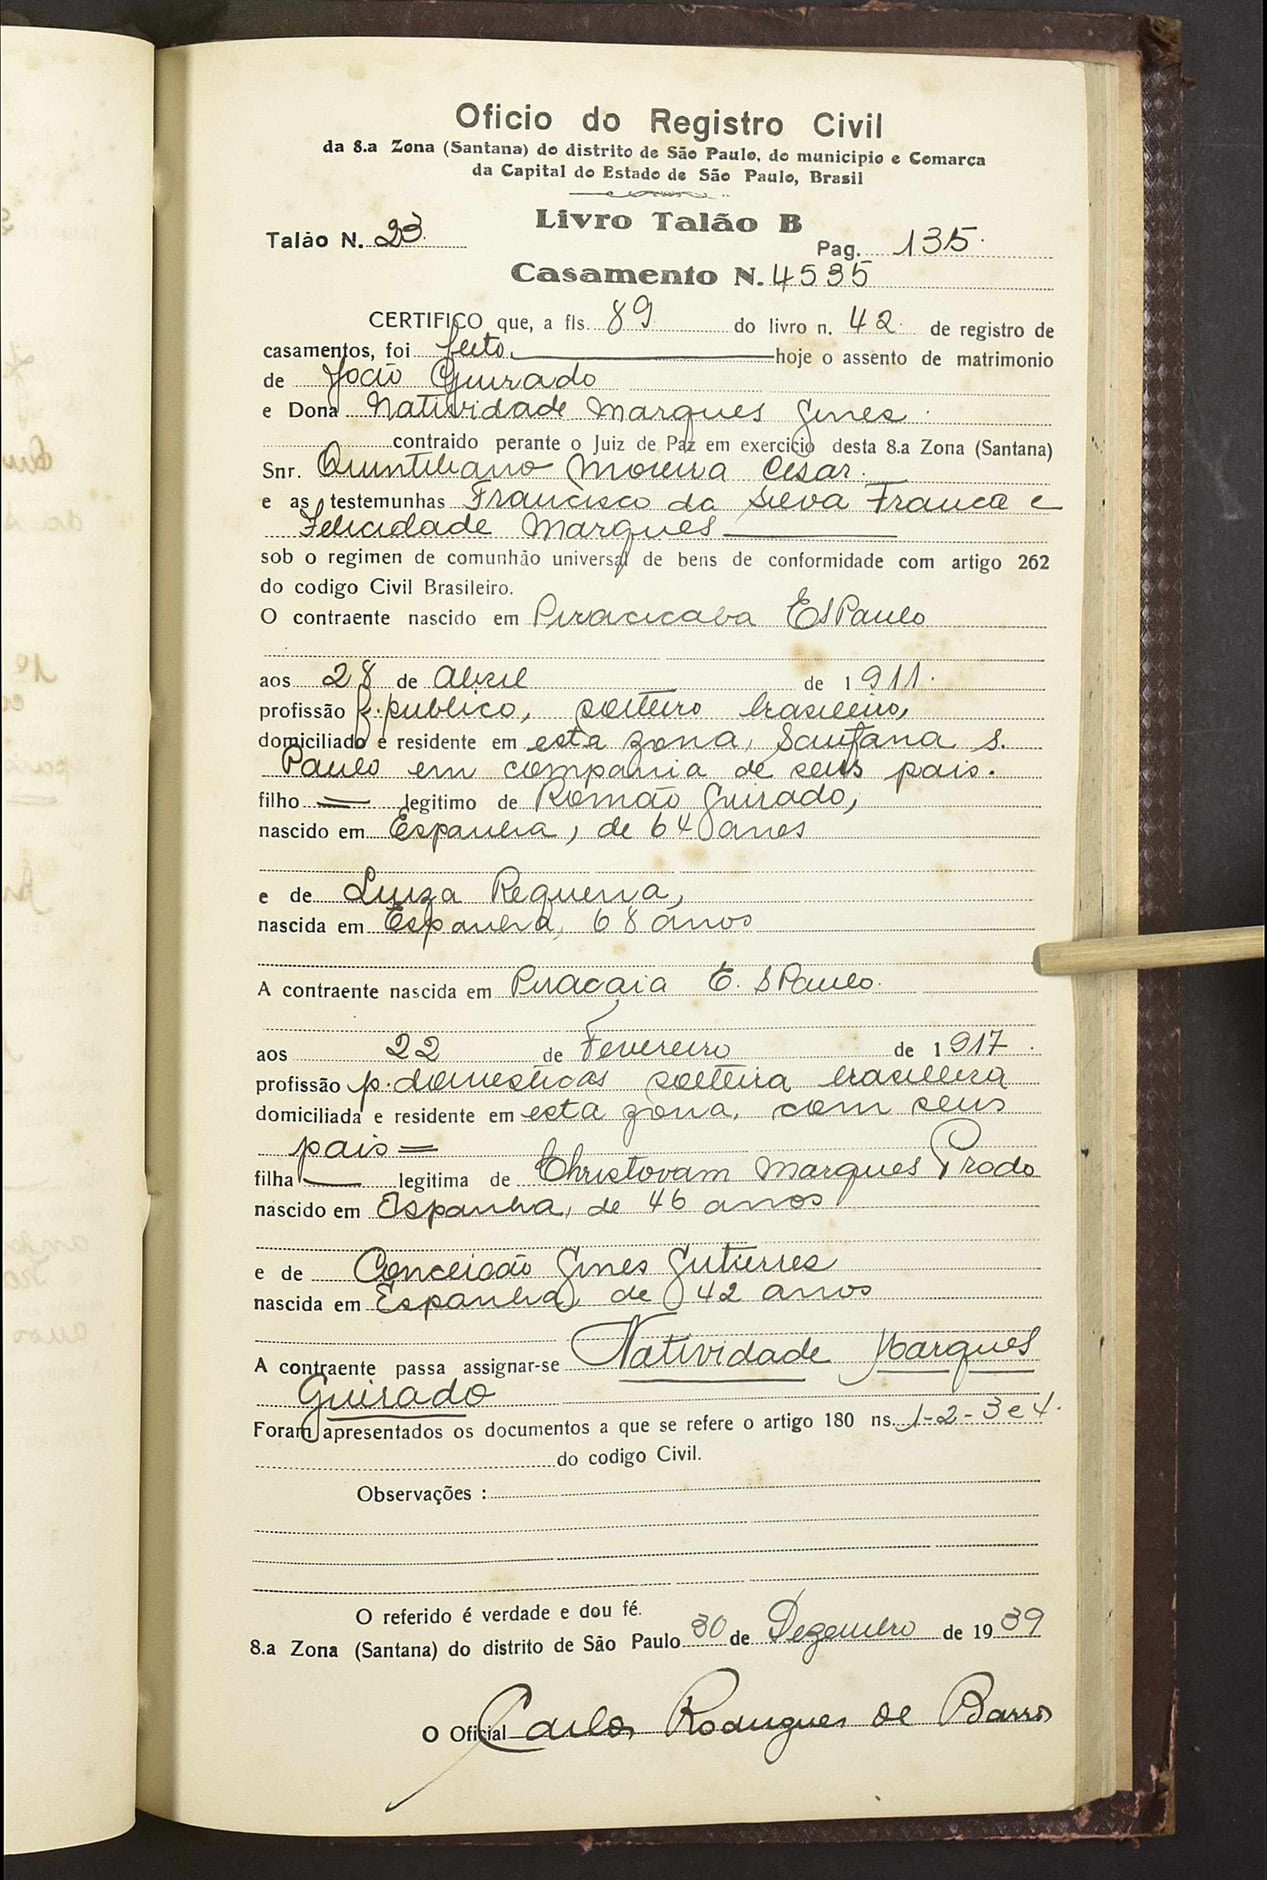 Oficio do Registro Civil
da 8.a Zona (Santana) do distrito de São Paulo, do municipio e Comarca
da Capital do Estado de São Paulo, Brasil
Livro Talão B
Talão N. 23. Pag. 135.
Casamento N. 4535
CERTIFICO que, a fls. 89 do livro n. 42 de registro de
casamentos, foi feito hoje o assento de matrimonio
de João Guirado
e Dona Natividade Marques Gines
contraido perante o Juiz de Paz em exercicio desta 8.a Zona (Santana)
Snr. Quintiliano Moreira Cesar.
e as testemunhas Francisco da Silva Franca e
Felicidade Marques
sob o regimen de comunhão universal de bens de conformidade com artigo 262
do codigo Civil Brasileiro.
O contraente nascido em Piracicaba E S Paulo
aos 28 de Abril de 1911.
profissão f. publico, solteiro brasileiro,
domiciliado e residente em esta zona, Santana S.
Paulo em compania de seus pais.
filho = legitimo de Romão Guirado,
nascido em Espanha, de 64 anos
e de Luiza Requena,
nascida em Espanha, 68 anos
A contraente nascida em Piracaia E. S Paulo.
aos 22 de Fevereiro de 1917.
profissão p. domesticas solteira brasileira
domiciliada e residente em esta zona, com seus
pais =
filha — legitima de Christovam Marques Prodo
nascido em Espanha, de 46 anos
e de Conceicão Gines Gutierres
nascida em Espanha, de 42 anos
A contraente passa assignar-se Natividade Marques
Guirado
Foram apresentados os documentos a que se refere o artigo 180 ns. 1-2-3 e 4.
do codigo Civil.
Observações :
O referido é verdade e dou fé.
8.a Zona (Santana) do distrito de São Paulo 30 de Dezembro de 1939
O Oficial Carlos Rodrigues de Barros